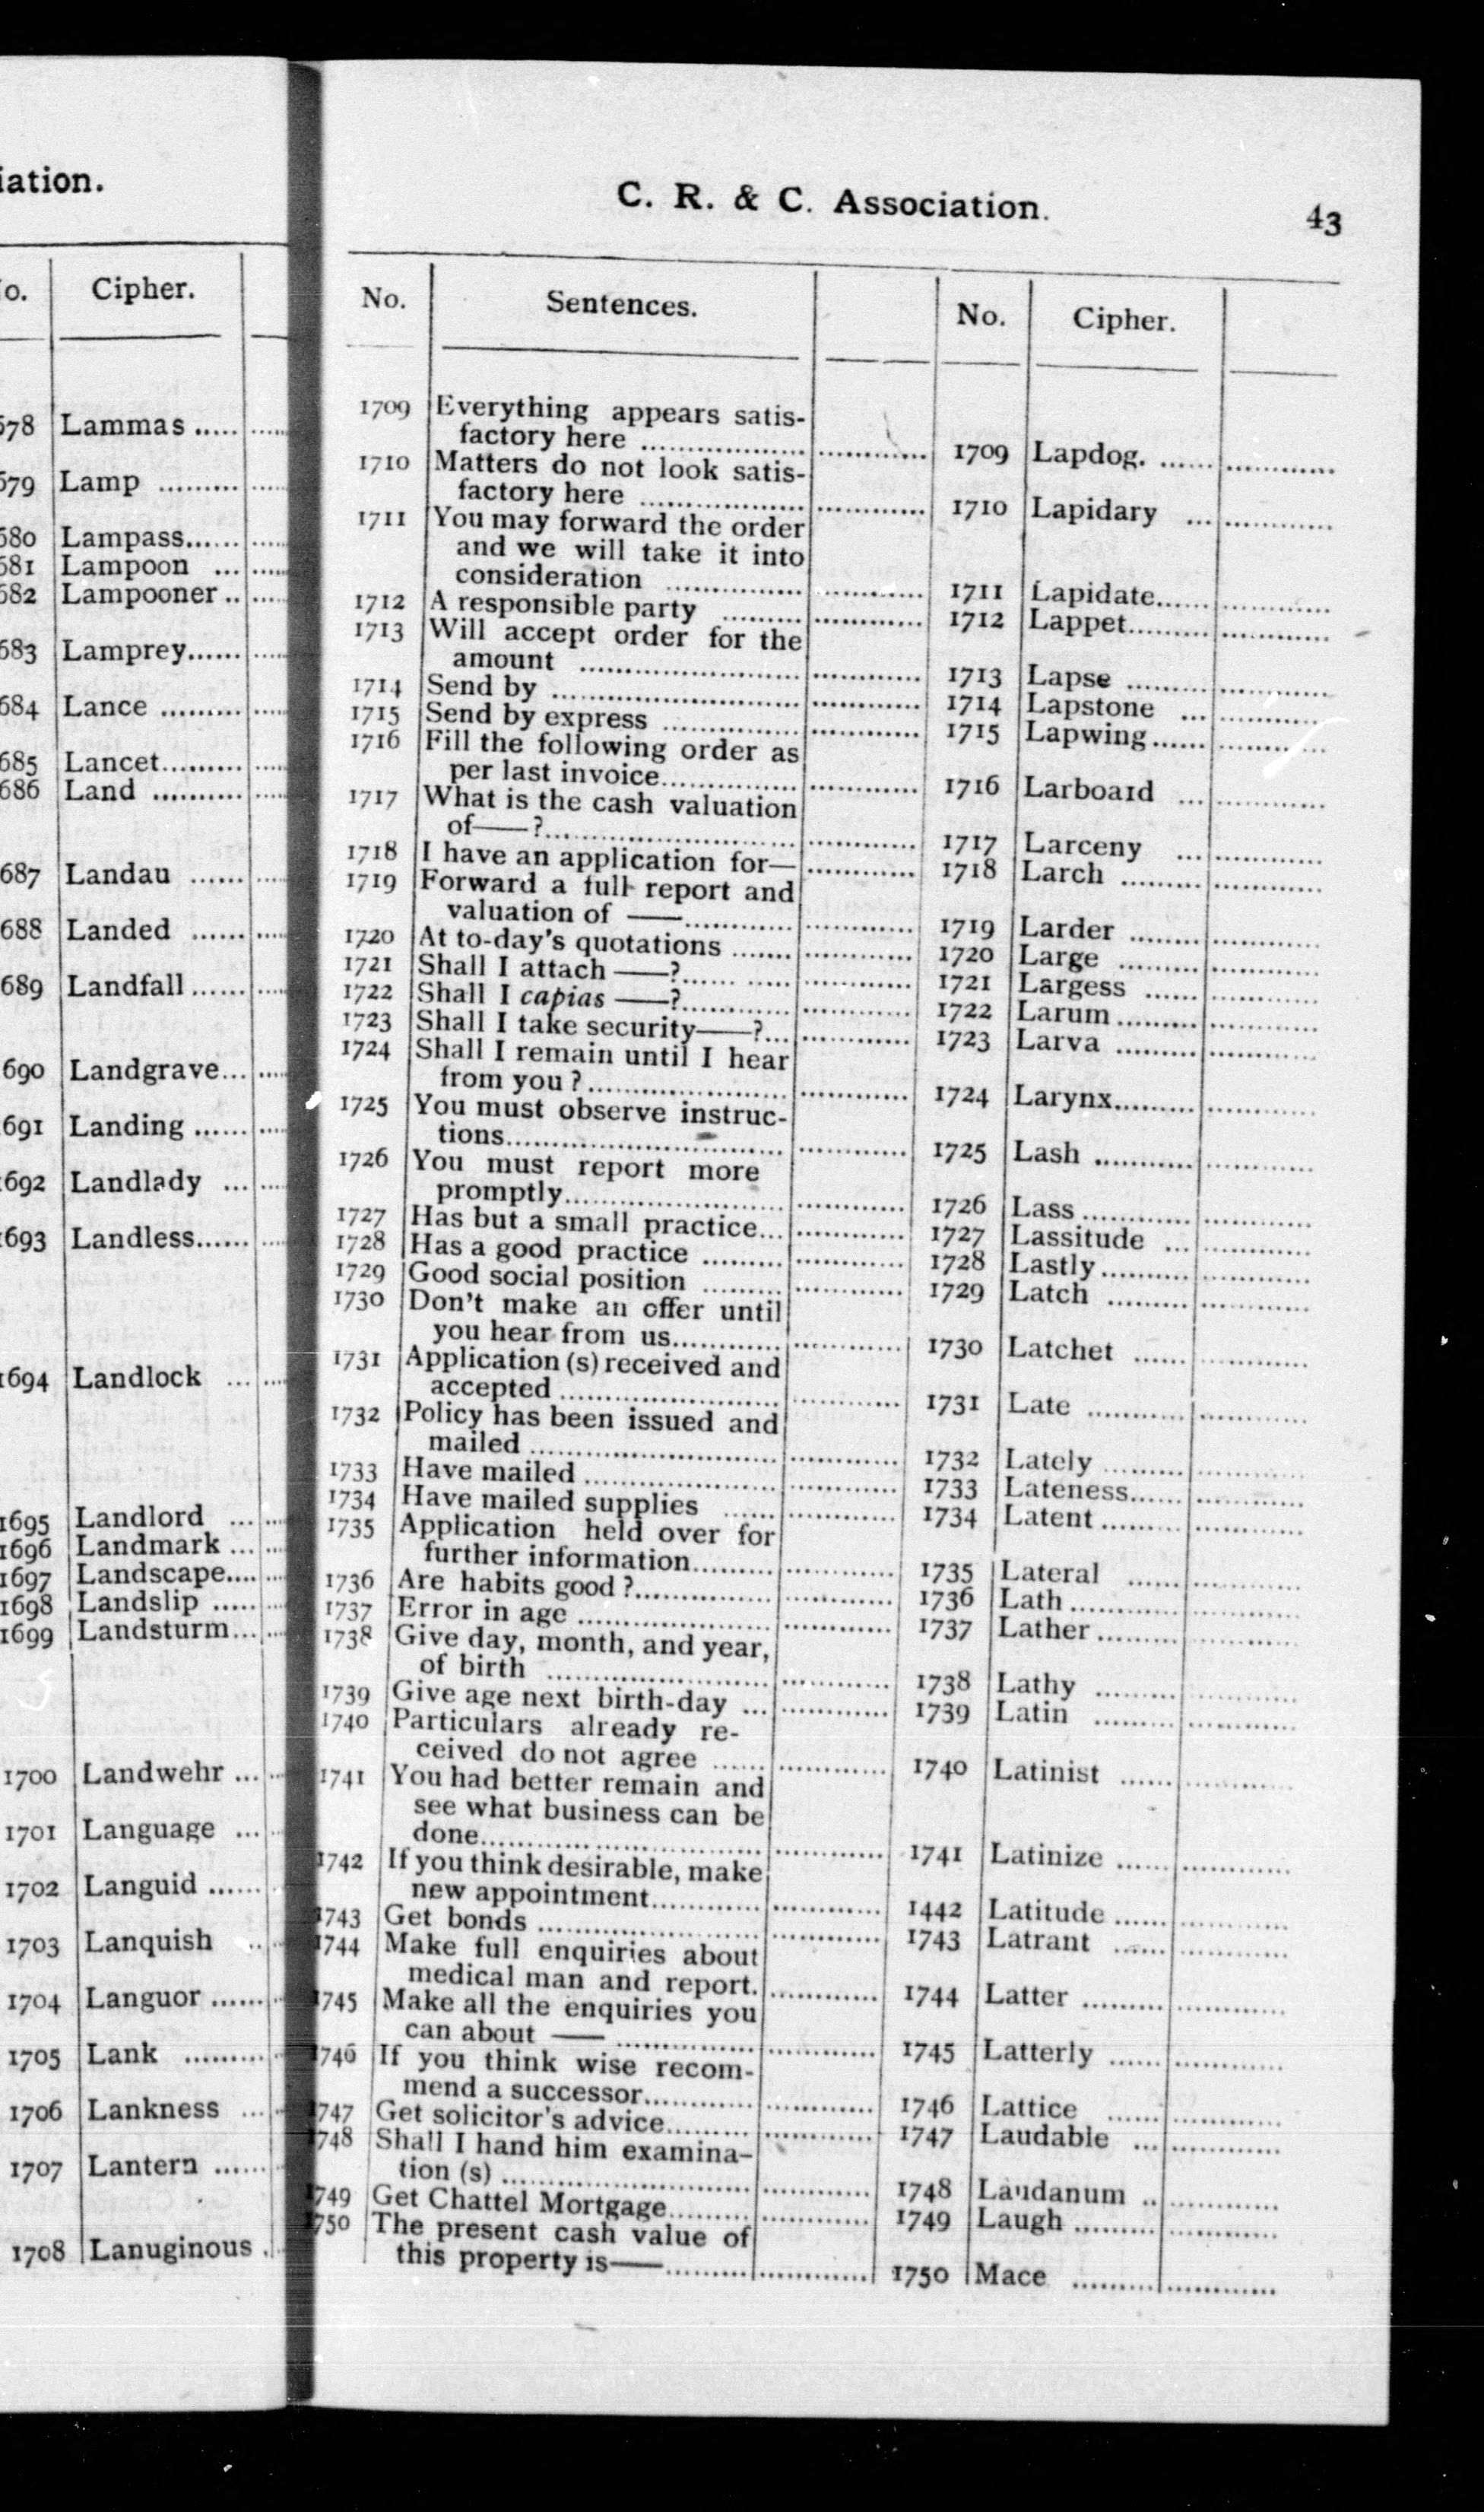 iation.
o.
Cipher.
678 Lammas .....
679 Lamp .........
680 Lampass......
681 Lampoon ...
682 Lampooner ..
683 Lamprey......
684 Lance .........
685 Lancet.........
686 Land ..........
687 Landau ......
688 Landed ......
689 Landfall ......
690 Landgrave...
691 Landing ......
1692 Landlady ...
1693 Landless......
1694 Landlock ...
1695 Landlord ...
1696 Landmark ...
1697 Landscape....
1698 Landslip .....
1699 Landsturm...
1700 Landwehr ...
1701 Language ...
1702 Languid ......
1703 Lanquish
1704 Languor ......
1705 Lank .........
1706 Lankness ...
1707 Lantern ......
1708 Lanuginous .
C. R. & C. Association.
43
No. Sentences. No. Cipher.
1709 Everything appears satis-
factory here .................. 1709 Lapdog. ......
1710 Matters do not look satis-
factory here .................. 1710 Lapidary ...
1711 You may forward the order
and we will take it into
consideration ............... 1711 Lapidate......
1712 A responsible party ......... 1712 Lappet.........
1713 Will accept order for the
amount ........................ 1713 Lapse .........
1714 Send by ........................... 1714 Lapstone ...
1715 Send by express ............... 1715 Lapwing......
1716 Fill the following order as
per last invoice............... 1716 Larboard ...
1717 What is the cash valuation
of——?........................... 1717 Larceny ...
1718 I have an application for— 1718 Larch .........
1719 Forward a full report and
valuation of ——............ 1719 Larder ........
1720 At to-day's quotations ....... 1720 Large .........
1721 Shall I attach ——?...... ..... 1721 Largess ......
1722 Shall I capias ——?............ 1722 Larum.........
1723 Shall I take security——?... 1723 Larva .........
1724 Shall I remain until I hear
from you ?...................... 1724 Larynx.........
1725 You must observe instruc-
tions.............................. 1725 Lash ...........
1726 You must report more
promptly........................ 1726 Lass ............
1727 Has but a small practice... 1727 Lassitude ...
1728 Has a good practice ......... 1728 Lastly..........
1729 Good social position ......... 1729 Latch .........
1730 Don't make an offer until
you hear from us............ 1730 Latchet ......
1731 Application (s) received and
accepted ........................ 1731 Late ...........
1732 Policy has been issued and
mailed ........................... 1732 Lately .........
1733 Have mailed ..................... 1733 Lateness......
1734 Have mailed supplies ...... 1734 Latent .........
1735 Application held over for
further information......... 1735 Lateral ......
1736 Are habits good ?............... 1736 Lath ............
1737 Error in age ..................... 1737 Lather .........
1738 Give day, month, and year,
of birth ........................ 1738 Lathy .........
1739 Give age next birth-day ... 1739 Latin .........
1740 Particulars already re-
ceived do not agree ...... 1740 Latinist ......
1741 You had better remain and
see what business can be
done.............................. 1741 Latinize ......
1742 If you think desirable, make
new appointment............ 1442 Latitude ......
1743 Get bonds ........................ 1743 Latrant ......
1744 Make full enquiries about
medical man and report. 1744 Latter .........
1745 Make all the enquiries you
can about —— ............... 1745 Latterly ......
1746 If you think wise recom-
mend a successor............ 1746 Lattice ......
1747 Get solicitor's advice......... 1747 Laudable ...
1748 Shall I hand him examina-
tion (s) ........................... 1748 Laudanum ..
1749 Get Chattel Mortgage......... 1749 Laugh .........
1750 The present cash value of
this property is——......... 1750 Mace .........